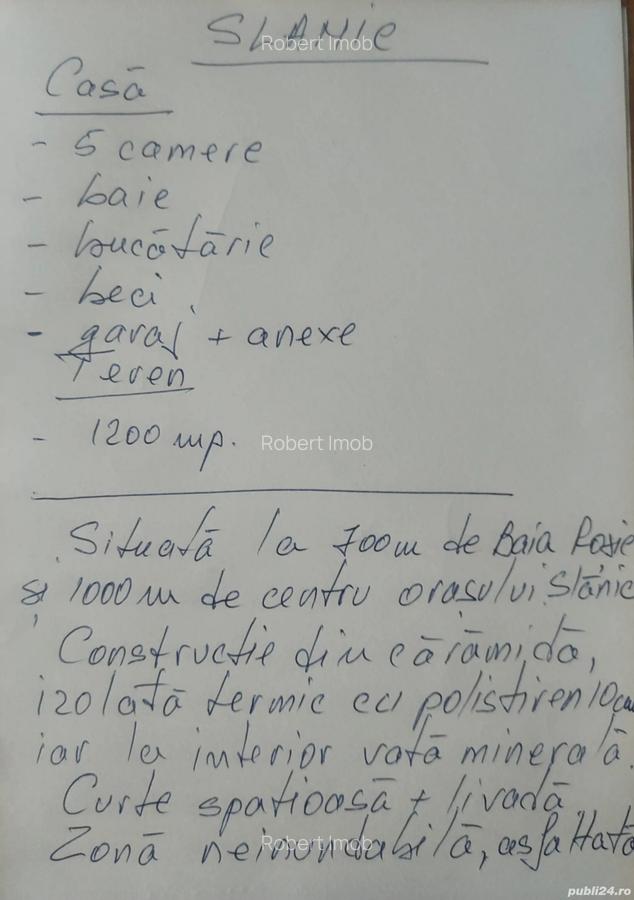 SLANIC
Robert Imob
Casă
- 5 camere
- baie
- bucătărie
- beci
- garaj + anexe
Teren
- 1200 mp.
Robert Imob
Situată la 700m de Baia Roșie
și 1000 m de centru orașului Slănic
Construcție din cărămidă,
izolată termic cu polistiren 10cm
iar la interior vată minerală.
Curte spațioasă + livadă
Zonă neinundabilă, asfaltată
Robert Imob
publi24.ro